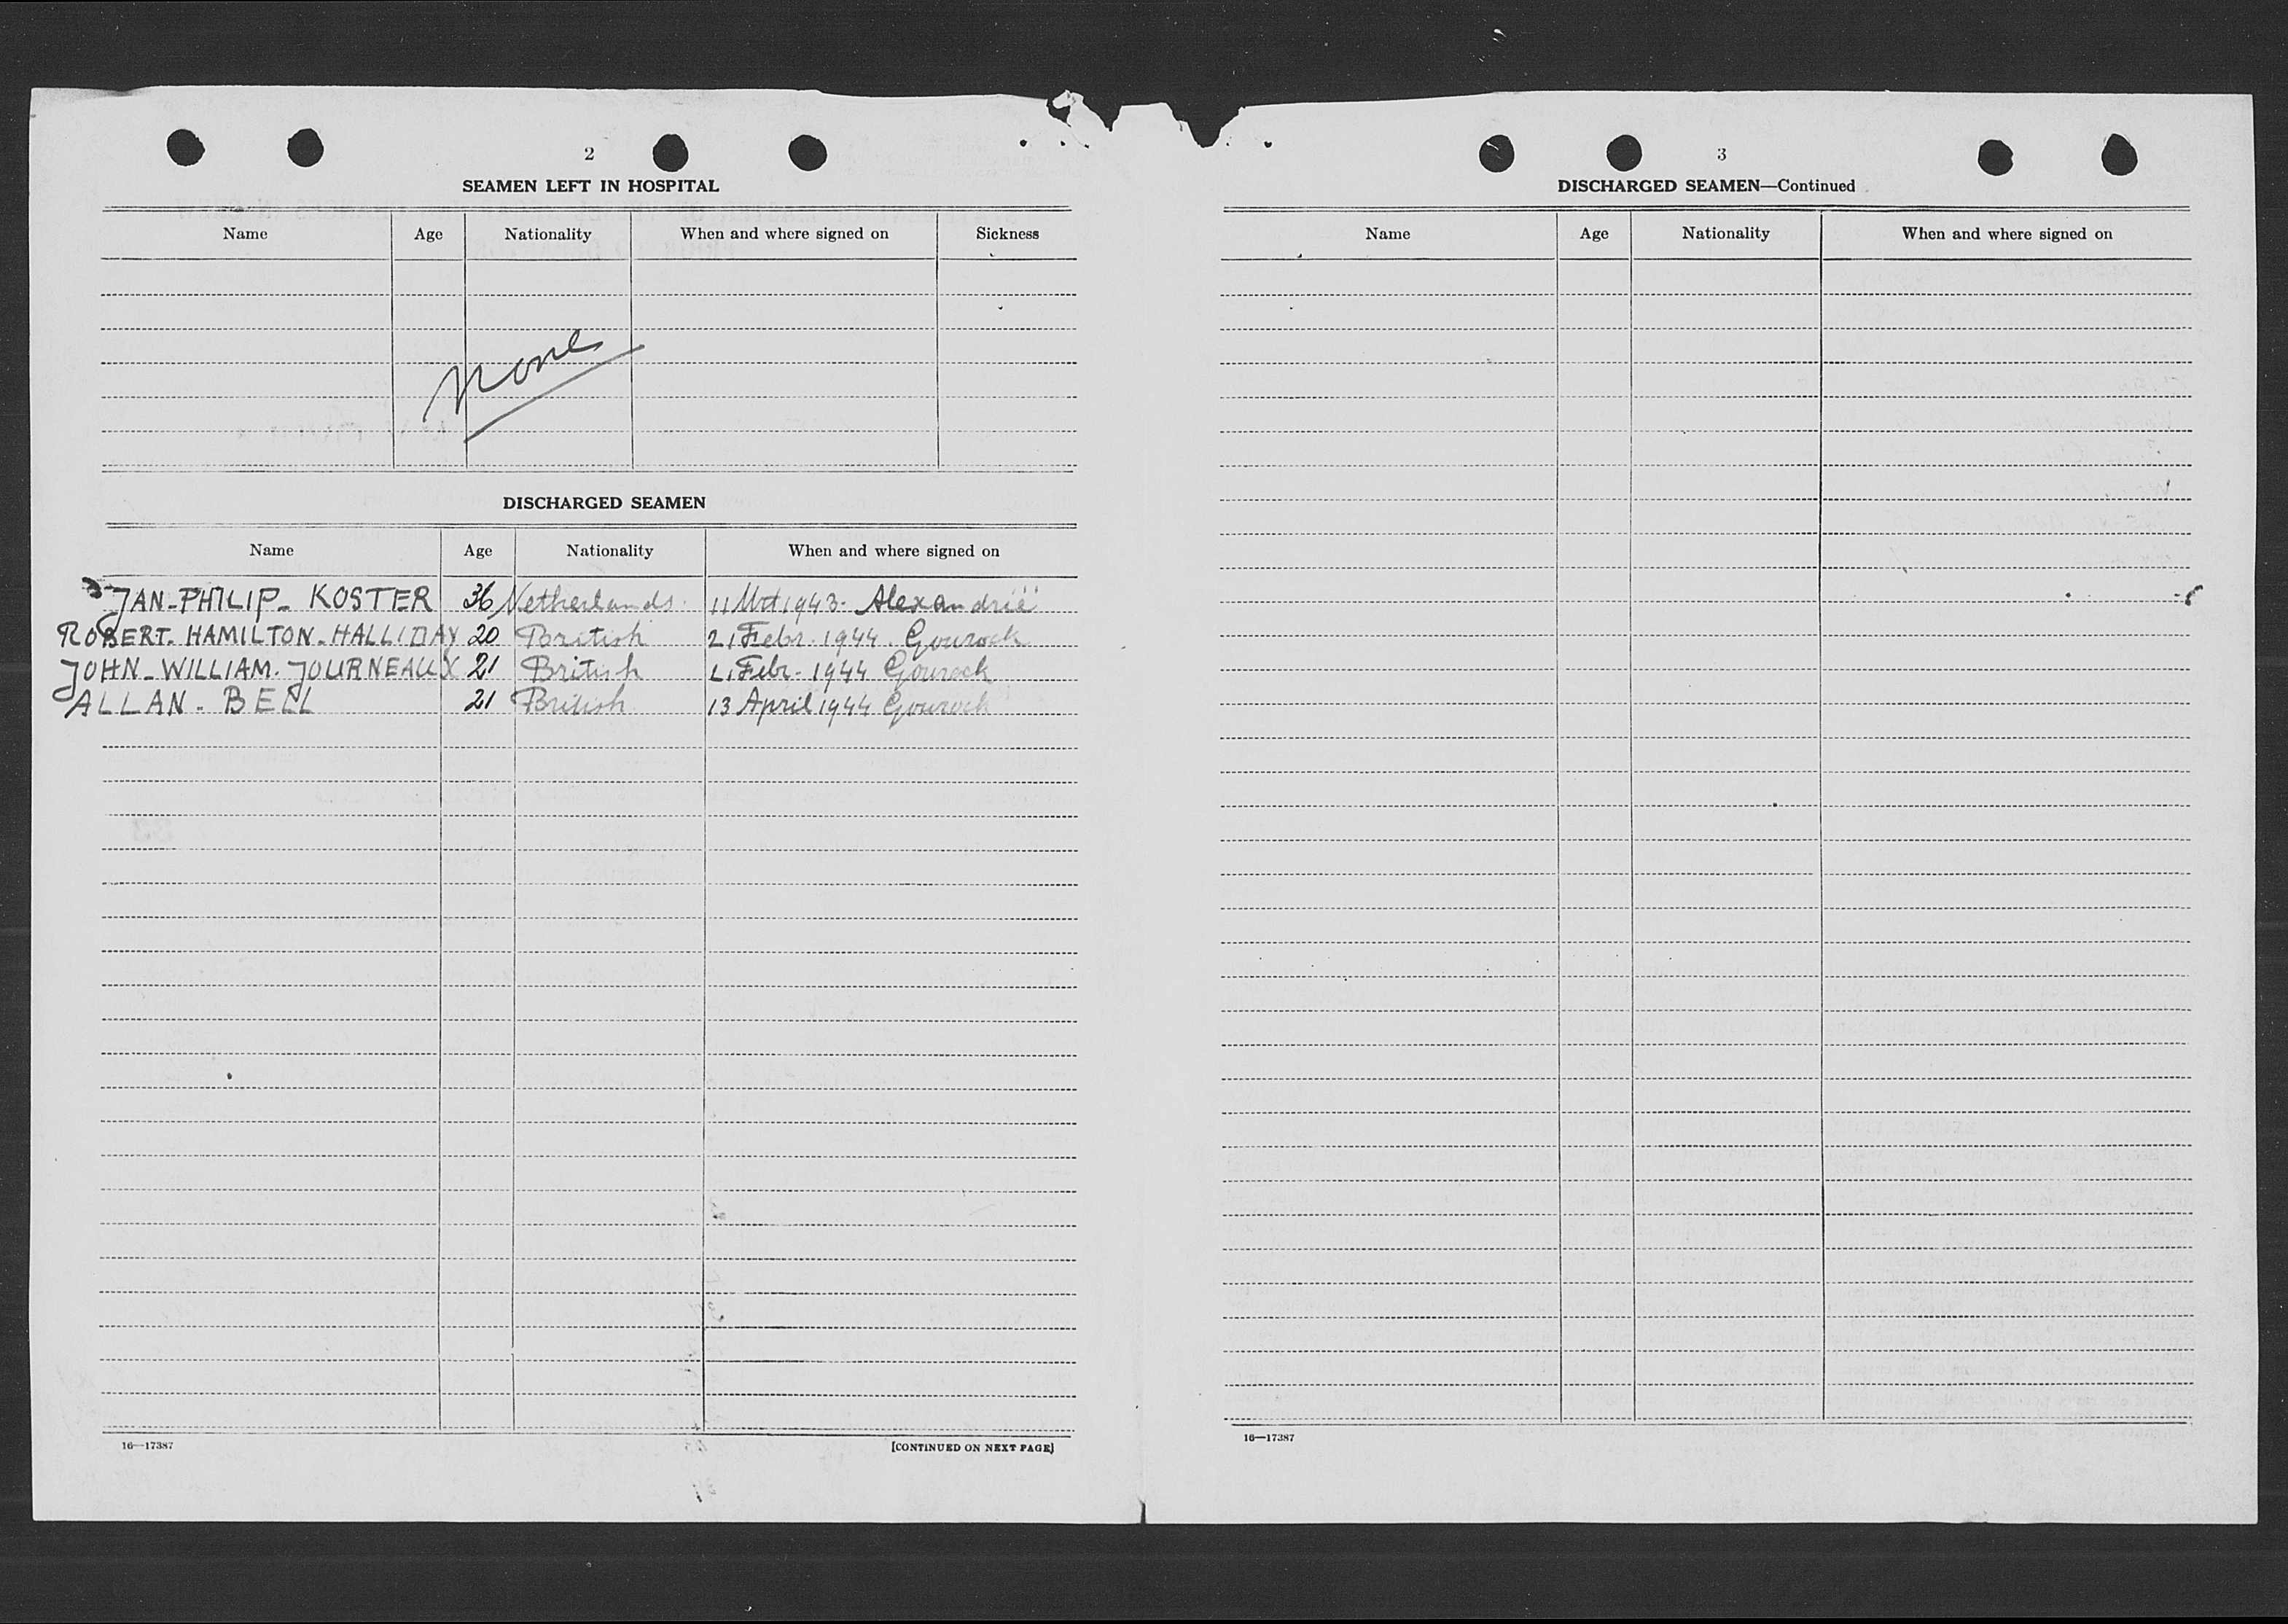 2
SEAMEN LEFT IN HOSPITAL
Name Age Nationality When and where signed on Sickness
none
DISCHARGED SEAMEN
Name Age Nationality When and where signed on
JAN-PHILIP- KOSTER 36 Netherlands 11 Mrt 1943. Alexandrië
ROBERT. HAMILTON. HALLIDAY 20 British 21 Febr. 1944. Gourock
JOHN-WILLIAM. JOURNEAUX 21 British Febr. 1944 Gourock
ALLAN. BELL 21 British 13 April 1944 Gourock
16—17387 [CONTINUED ON NEXT PAGE]
3
DISCHARGED SEAMEN—Continued
Name Age Nationality When and where signed on
16—17387